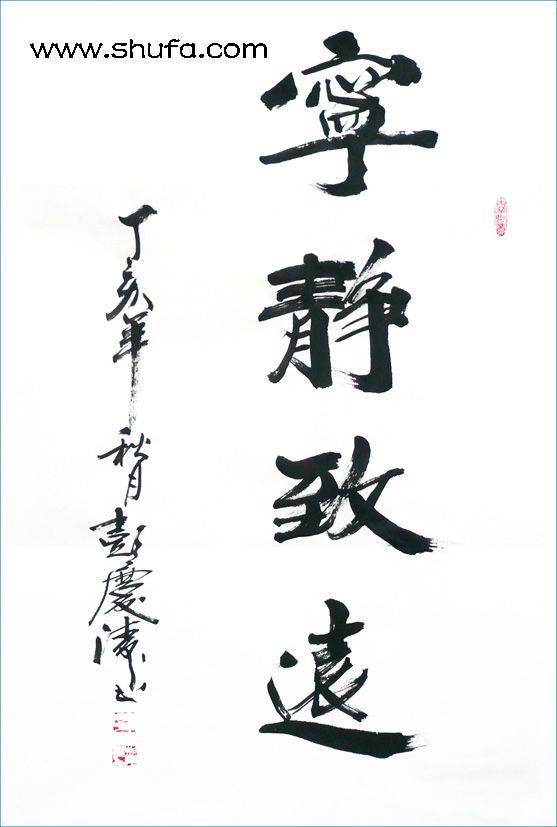 www.shufa.com
寧静致遠
丁亥年秋月彭慶涛书